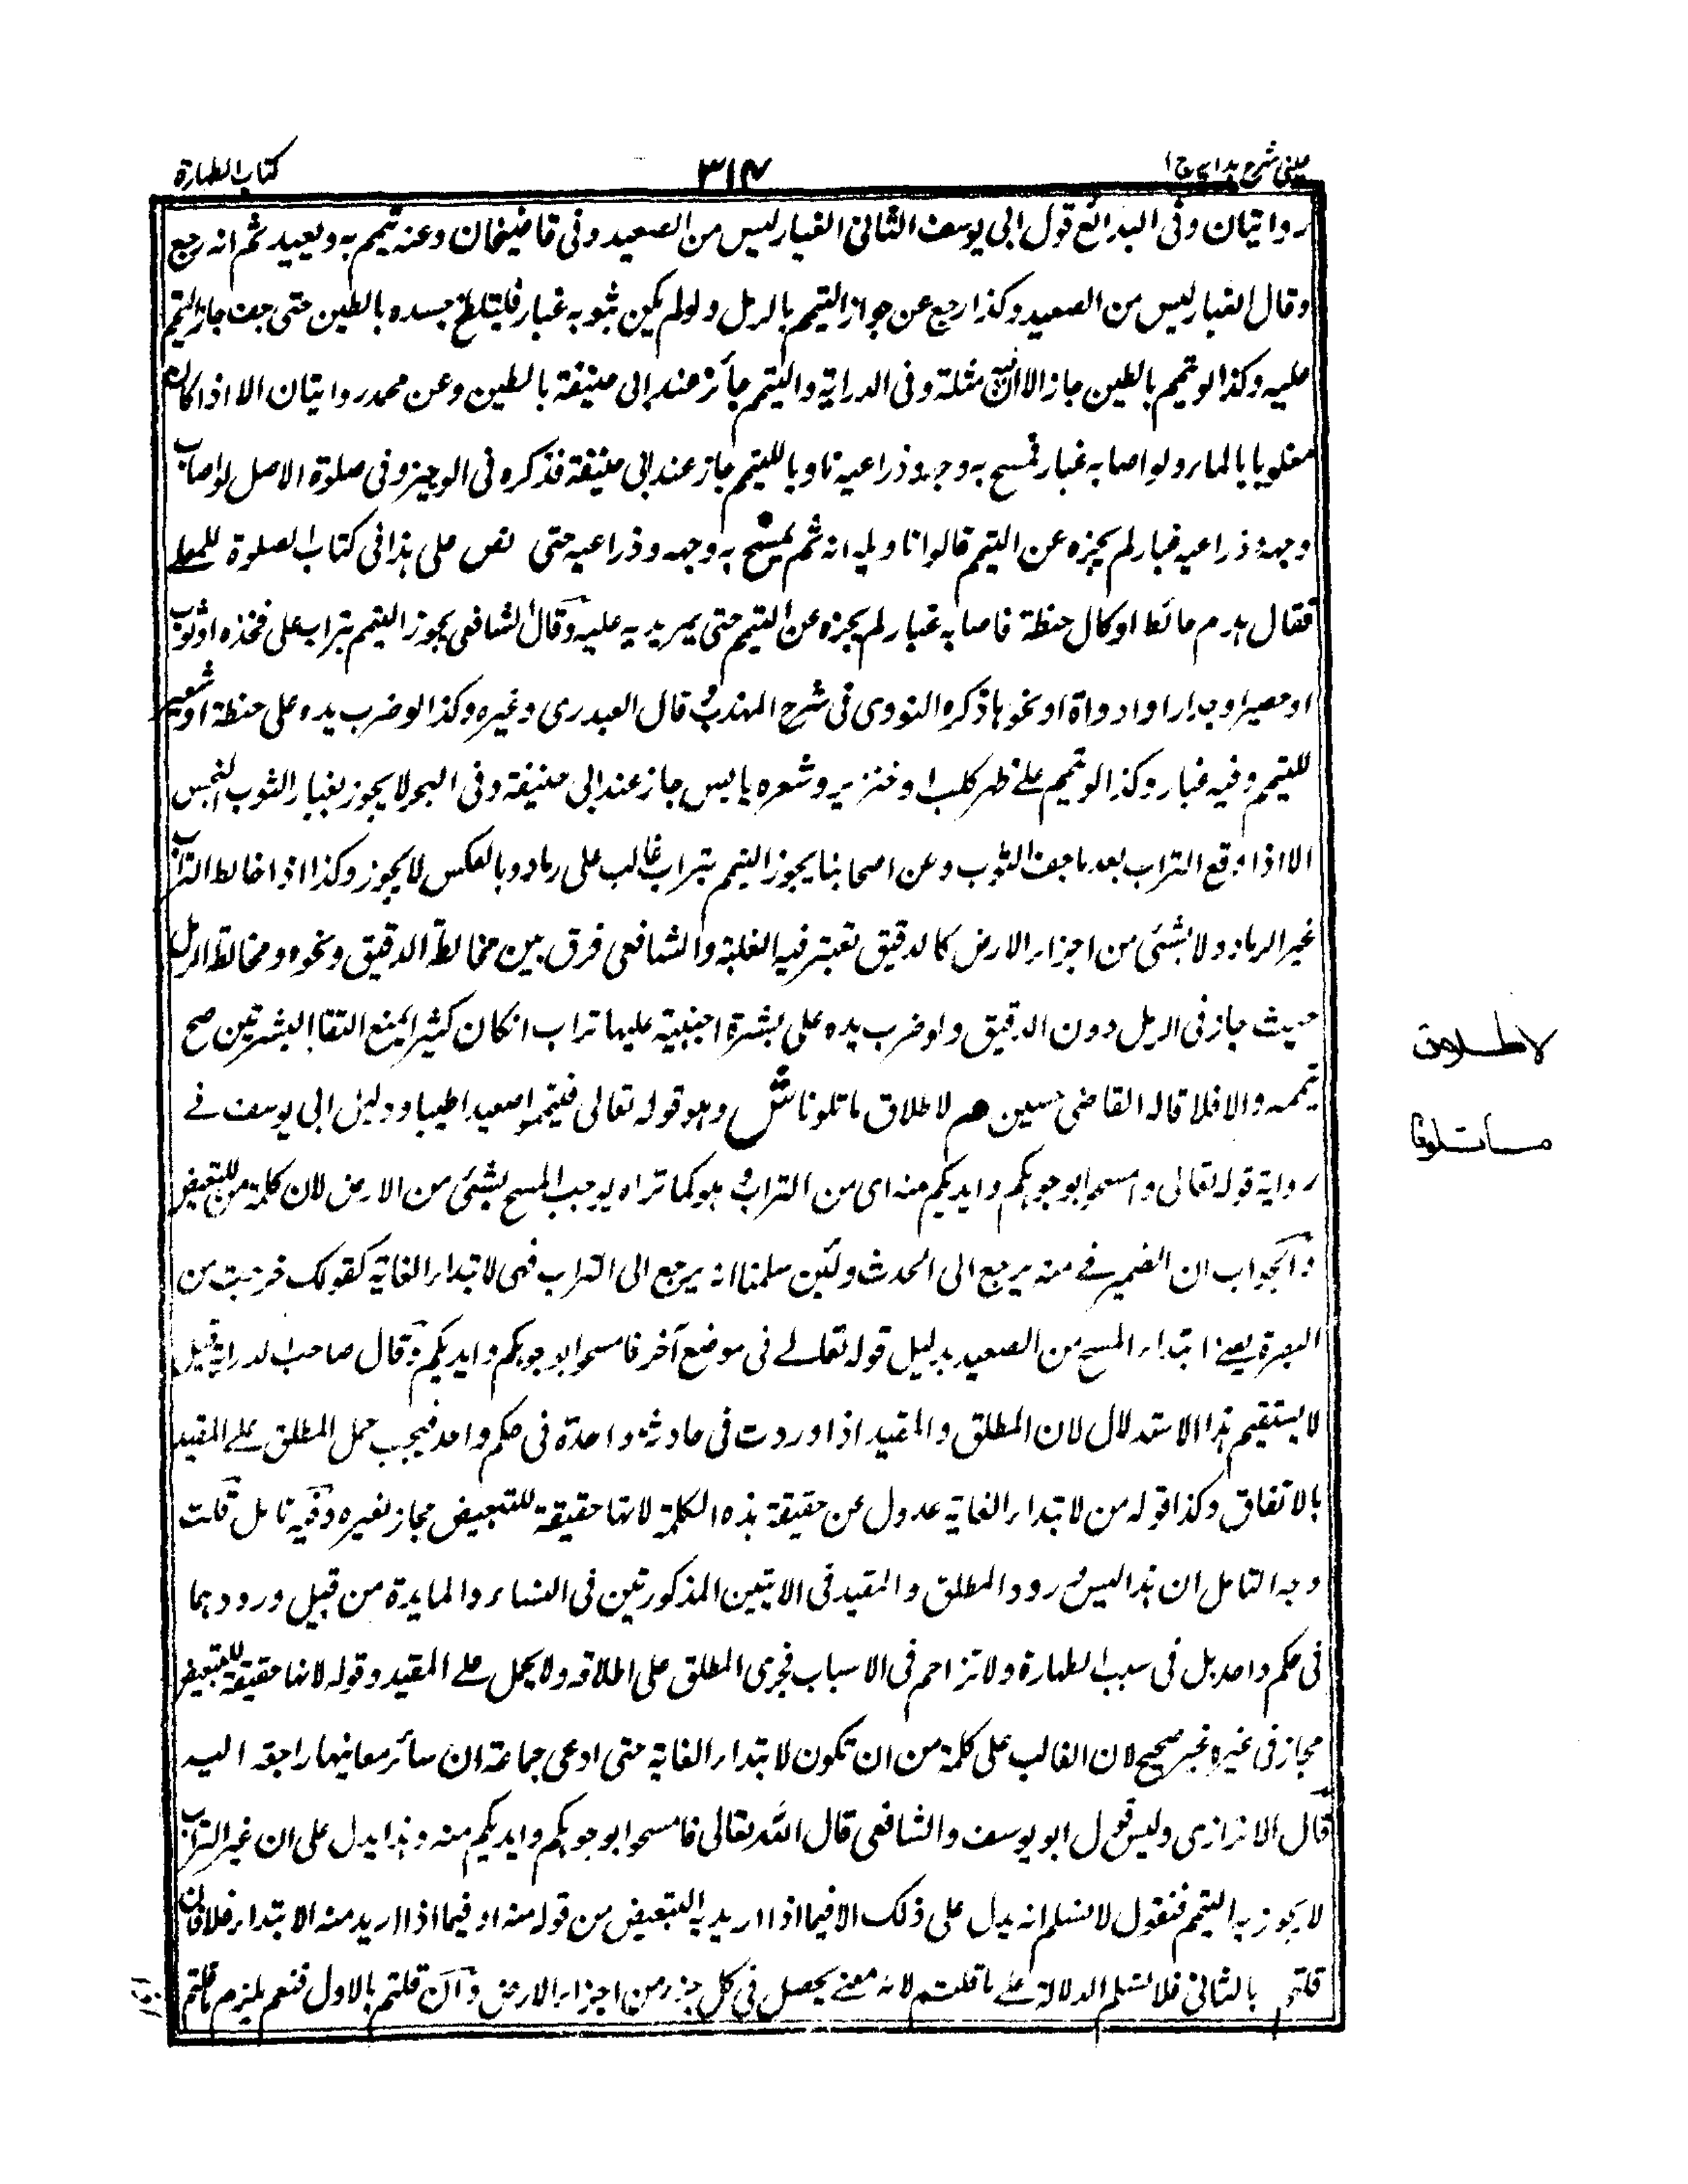 عینی شرح ہدایہ ج ۱
۳۱۴
کتاب الطہارة
روایتان وفی البدائع قول ابی یوسف الثانی الغبار لیس من الصعید وفی قاضیخان وعنہ تیمم بہ ویعید ثم انہ رجع
وقال الغبار لیس من الصعید وکذا رجع عن جواز التیمم بالرمل ولو لم یکن بثوبہ غبار فلیتلطخ جسدہ بالطین حتی جف جاز التیمم
علیہ وکذا لو تیمم بالطین جاز الا ان فیہ مثلة وفی الدرایة والتیمم جائز عند ابی حنیفة بالطین وعن محمد روایتان الا اذا کان
مغلوبا بالماء ولو اصابہ غبار فمسح بہ وجہہ وذراعیہ ناویا للتیمم جاز عند ابی حنیفة فذکرہ فی الوجیز وفی صلوة الاصل لو اصاب
وجہہ وذراعیہ غبار لم یجزہ عن التیمم قالوا تاویلہ انہ ثم لم یمسح بہ وجہہ وذراعیہ حتی نص علی ہذا فی کتاب الصلوة للمعلی
فقال ہدم حائط او کال حنطة فاصابہ غبار لم یجزہ عن التیمم حتی یمر یدیہ علیہ وقال الشافعی یجوز التیمم بتراب علی فخذہ او ثوب
او حصیر او جدار او اداوة او نحوہا ذکرہ النووی فی شرح المہذب وقال العبدری وغیرہ وکذا لو ضرب یدہ علی حنطة او شعیر
للتیمم وفیہ غبار وکذا لو تیمم علے ظہر کلب او خنزیر وشعرہ یابس جاز عند ابی حنیفة وفی البحر لا یجوز بغبار الثوب النجس
الا اذا وقع التراب بعد ما جف الثوب وعن اصحابنا یجوز التیمم بتراب غالب علی رماد وبالعکس لا یجوز وکذا اذا خالط التراب
غیر الرماد ولا بشئی من اجزاء الارض کالدقیق تعتبر فیہ الغلبة والشافعی فرق بین مخالطة الدقیق ونحوہ ومخالطة الرمل
حیث جاز فی الرمل دون الدقیق ولو ضرب یدہ علی بشرة اجنبیة علیہا تراب انکان کثیرا یمنع التقاء البشرتین صح
تیممہ والا فلا قالہ القاضی حسین ھم لاطلاق ما تلونا ش وہو قولہ تعالی فتیمموا صعیدا طیبا ودلیل ابی یوسف فے
روایة قولہ تعالی وامسحوا بوجوہکم وایدیکم منہ ای من التراب وہو کما تراہ یوجب المسح بشئی من الارض لان کلمة من للتبعیض
والجواب ان الضمیر فے منہ یرجع الی الحدث ولئن سلمنا انہ یرجع الی التراب فہی لابتداء الغایة کقولک خرجت من
البصرة یعنے ابتداء المسح من الصعید بدلیل قولہ تعالے فی موضع آخر فامسحوا بوجوہکم وایدیکم وقال صاحب الدرایة قیل
لا یستقیم ہذا الاستدلال لان المطلق والمقید اذا وردت فی حادثة واحدة فی حکم واحد فیجب حمل المطلق علے المقید
بالاتفاق وکذا قولہ من لابتداء الغایة عدول عن حقیقة ہذہ الکلمة لانہا حقیقة للتبعیض مجاز لغیرہ وفیہ تامل قلت
وجہ التامل ان ہذا لیس ورود المطلق والمقید فی الایتین المذکورتین فی النساء والمایدة من قبیل ورودہما
فی حکم واحد بل فی سبب الطہارة ولا تزاحم فی الاسباب فجری المطلق علی اطلاقہ ولا یحمل علے المقید وقولہ لانہا حقیقة للتبعیض
مجاز فی غیرہ غیر صحیح لان الغالب علی کلمة من ان تکون لابتداء الغایة حتی ادعی جماعة ان سائر معانیہا راجعة الیہ
قال الاترازی ولیس قول ابو یوسف والشافعی قال اللہ تعالی فامسحوا بوجوہکم وایدیکم منہ وہذا یدل علی ان غیر التراب
لا یجوز بہ التیمم فنقول لا نسلم انہ یدل علی ذلک الا فیما اذا ارید بہ التبعیض من قولہ منہ او فیما اذا ارید منہ الابتداء فلا فان
قلتم بالثانی فلا نسلم الدلالة علے ما قلتم لانہ معنے یحصل فی کل جزء من اجزاء الارض وان قلتم بالاول فنعم یلزم ما قلتم
لاطلاق
ما تلونا